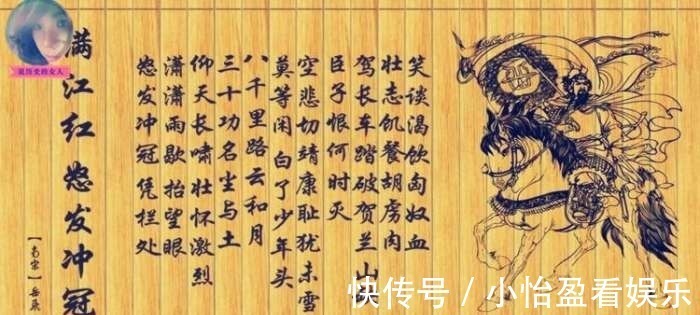 满江红 怒发冲冠
【南宋】岳飞
怒发冲冠凭栏处
潇潇雨歇抬望眼
仰天长啸壮怀激烈
三十功名尘与土
八千里路云和月
莫等闲 白了少年头
空悲切靖康耻犹未雪
臣子恨何时灭
驾长车踏破贺兰山
壮志饥餐胡虏肉
笑谈渴饮匈奴血
说历史的女人
快传号 / 小怡盈看娱乐